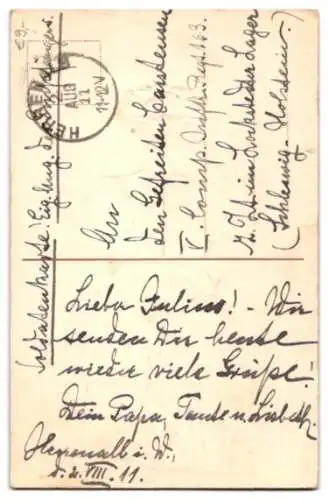 €9,-
HERRENALB
AUG
11
11-12V
Soldatenkarte! Eig. Ang. d. Empfängers.
An
den Gefreiten Carstensen
V. Comp. Inftr. Regt. 163.
z. Zt. im Lockstedter Lager
(Schleswig-Holstein.)
Lieber Julius! - Wir
senden Dir heute
wieder viele Grüße!
Dein Papa, Tante u. Lisbeth.
Herrenalb i. W.,
d. 2. VIII. 11.